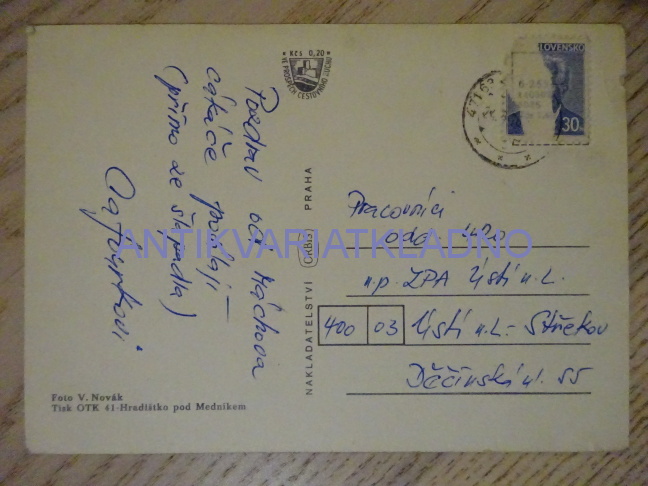 Pozdrav od Máchova
cákače posílají
(přímo ze štrapádla)
Kčs 0,20
VE PROSPĚCH CESTOVNÍHO RUCHU
SLOVENSKO
30
NAKLADATELSTVÍ ORBIS PRAHA
Pracovníci
odd. 420
n.p. ZPA Ústí n.L.
400 03 Ústí n.L.- Střekov
Děčínská ul. 55
Foto V. Novák
Tisk OTK 41-Hradištko pod Medníkem
ANTIKVARIATKLADNO